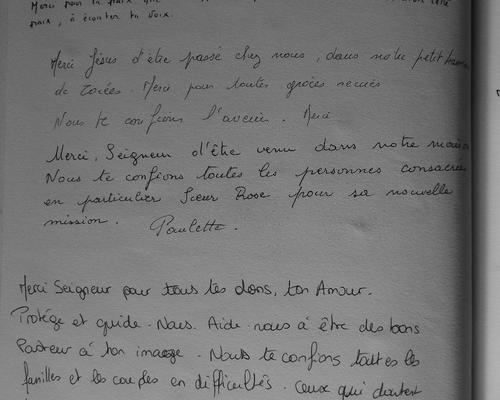 Merci pour la paix que
paix, à écouter ta voix.
Merci Jésus d'être passé chez nous, dans notre petit
de Torées. Merci pour toutes grâces reçues
Nous te confions l'avenir. Merci
Merci, Seigneur d'être venu dans notre maison
Nous te confions toutes les personnes consacrées
en particulier Sœur Rose pour sa nouvelle
mission. Paulette.
Merci Seigneur pour tous tes dons, ton Amour.
Protège et guide. Nous. Aide nous à être des bons
Pasteur à ton image. Nous te confions toutes les
familles et les couples en difficultés. Ceux qui doutent